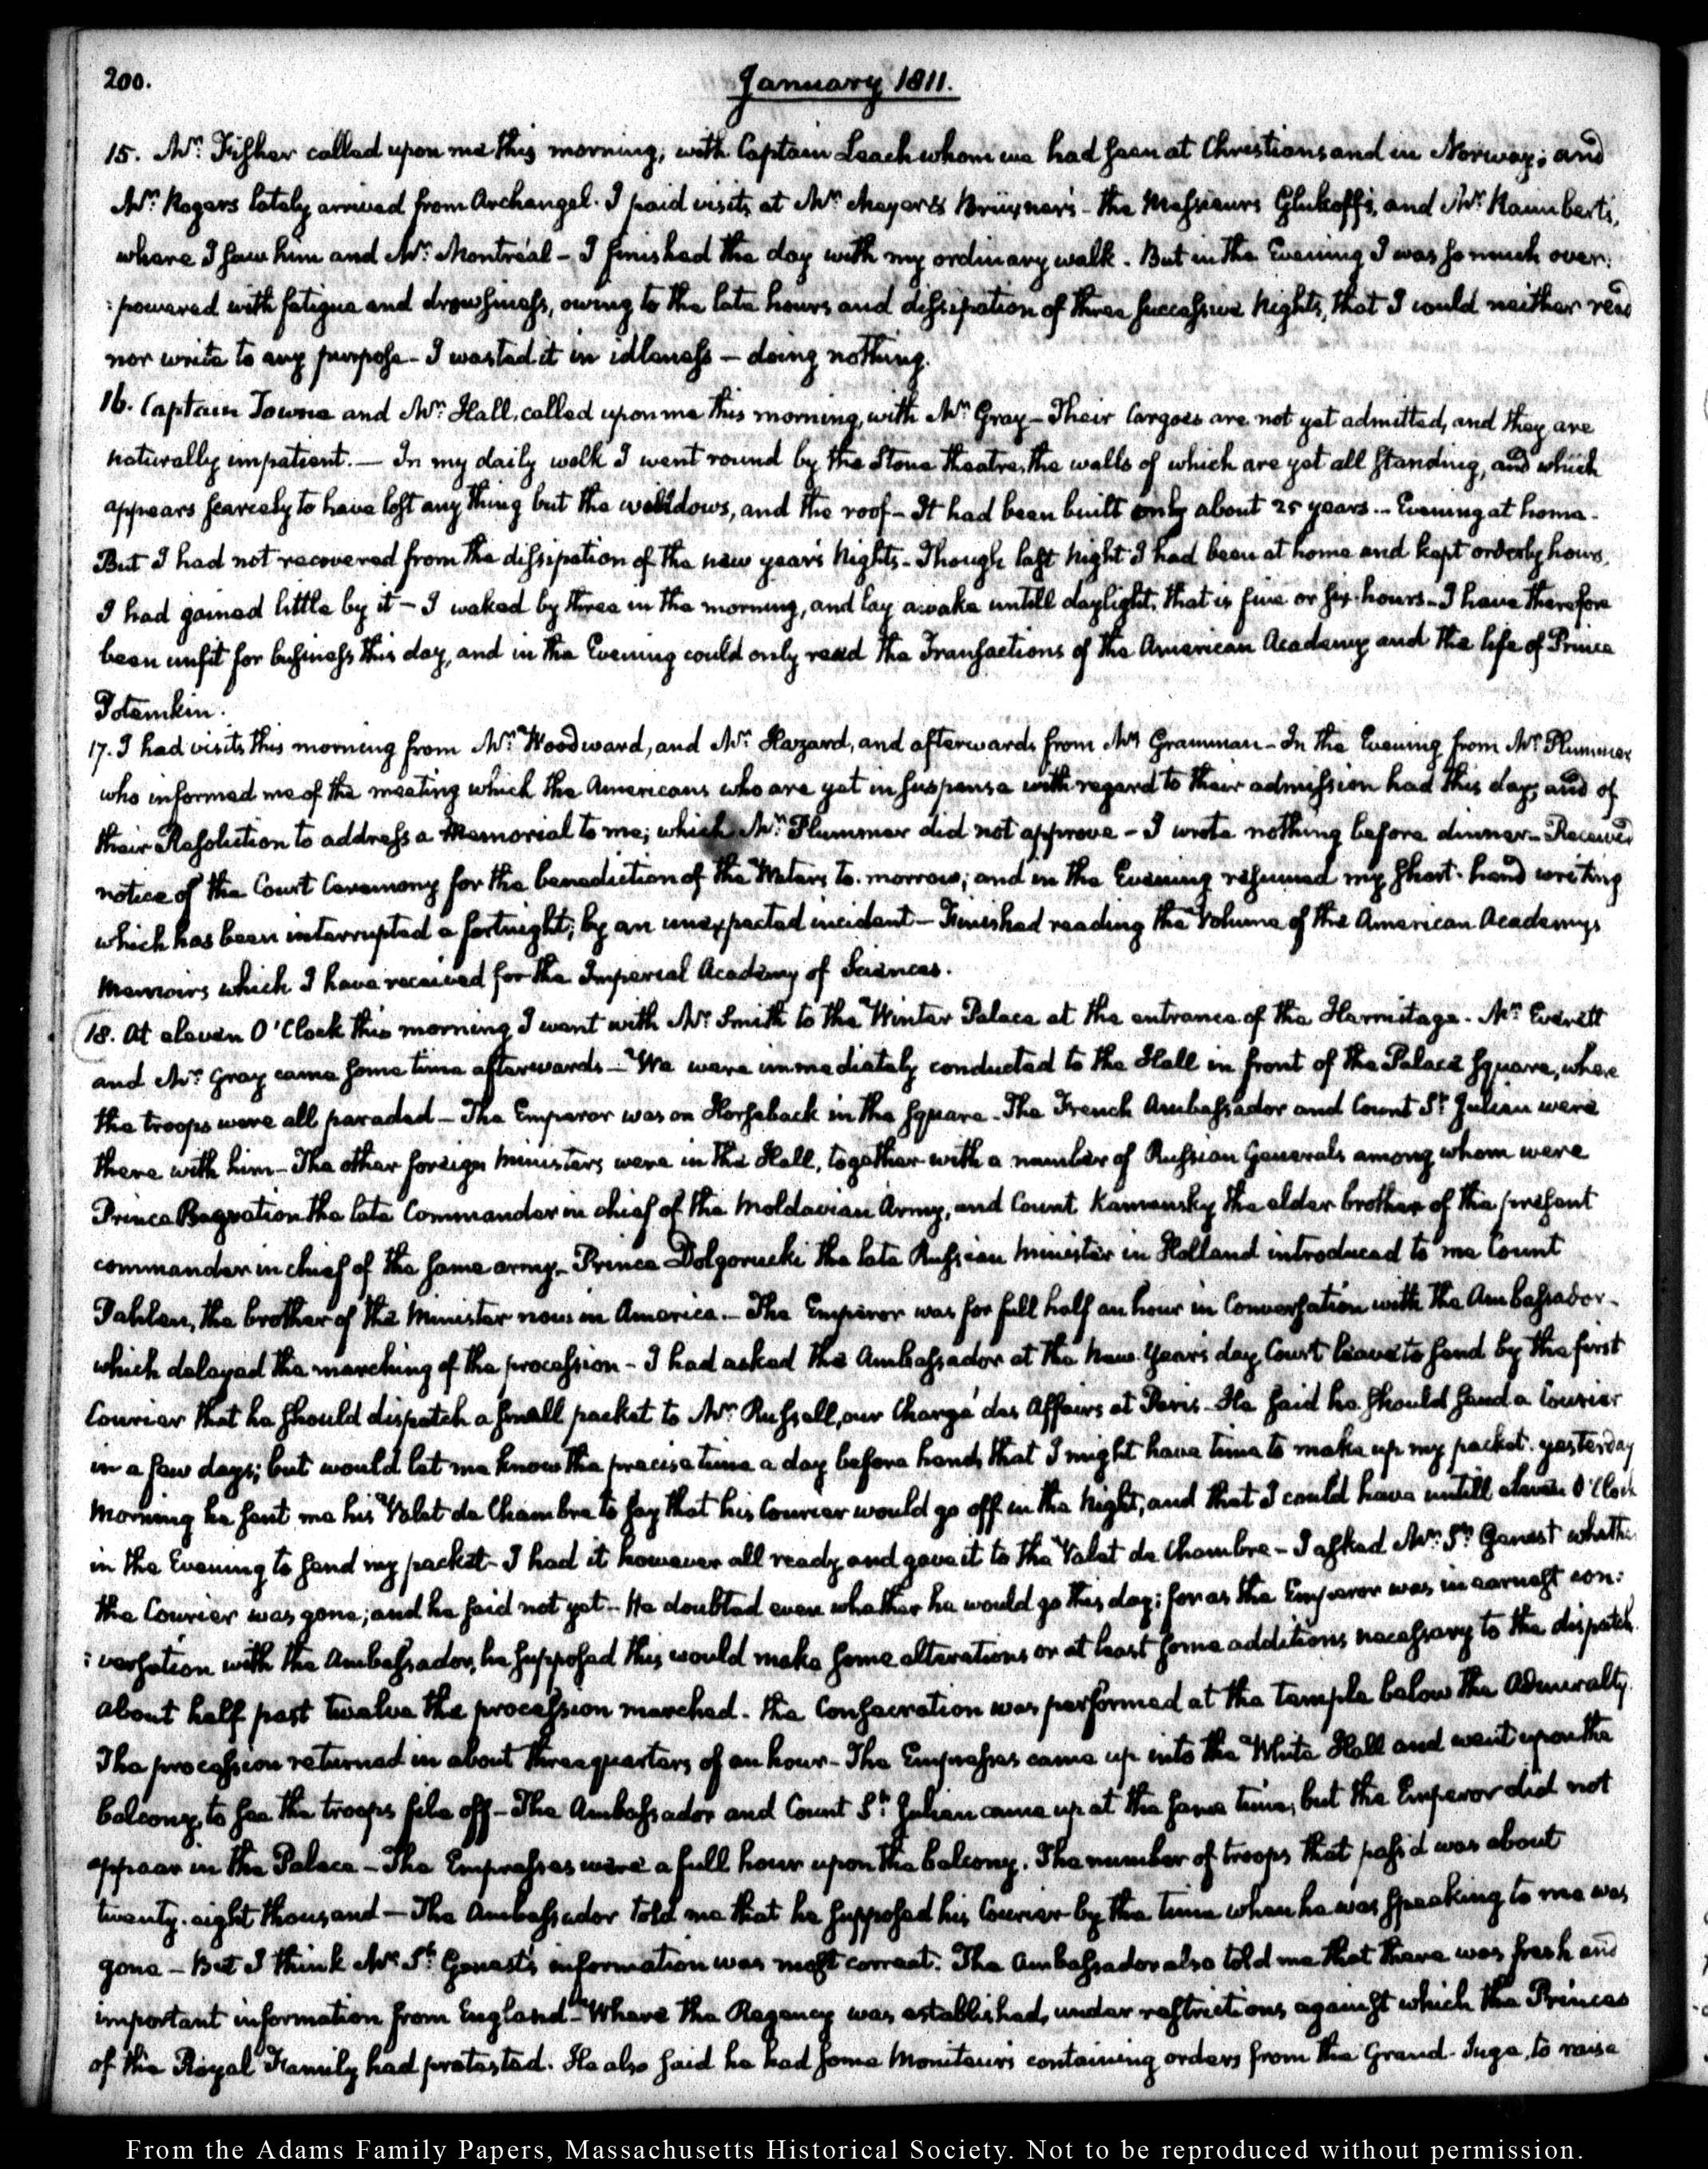 200.
January 1811.
15. Mr. Fisher called upon me this morning, with Captain Leach whom we had seen at Christiansand in Norway; and
Mr. Rogers lately arrived from Archangel. I paid visits at Mr. Meyer & Brüxner's - the Messieurs Glukoff's, and Mr. Raimbert's,
where I saw him and Mr. Montréal - I finished the day with my ordinary walk. But in the Evening I was so much over:
:powered with fatigue and drowsiness, owing to the late hours and dissipation of three successive Nights, that I could neither read
nor write to any purpose - I wasted it in idleness - doing nothing.
16. Captain Towne and Mr. Hall, called upon me this morning, with Mr. Gray - Their Cargoes are not yet admitted, and they are
naturally impatient. - In my daily walk I went round by the Stone theatre, the walls of which are yet all standing, and which
appears scarcely to have lost any thing but the windows, and the roof - It had been built only about 25 years. - Evening at home.
But I had not recovered from the dissipation of the new year's Nights - Though last Night I had been at home and kept orderly hours,
I had gained little by it - I waked by three in the morning, and lay awake untill daylight, that is five or six hours - I have therefore
been unfit for business this day, and in the Evening could only read the Transactions of the American Academy and the life of Prince
Potemkin.
17. I had visits this morning from Mr. Woodward, and Mr. Hazard, and afterwards from Mr. Gramman - In the Evening from Mr. Plummer
who informed me of the meeting which the Americans who are yet in suspense with regard to their admission had this day, and of
their Resolution to address a Memorial to me; which Mr. Plummer did not approve - I wrote nothing before dinner - Received
notice of the Court Ceremony for the benediction of the Waters to-morrow; and in the Evening resumed my short-hand writing
which has been interrupted a fortnight; by an unexpected incident - Finished reading the Volume of the American Academy's
Memoirs which I have received for the Imperial Academy of Sciences.
18. At eleven O'Clock this morning I went with Mr. Smith to the Winter Palace at the entrance of the Hermitage. Mr. Everett
and Mr. Gray came some time afterwards - We were immediately conducted to the Hall in front of the Palace Square, where
the troops were all paraded - The Emperor was on Horseback in the square - The French Ambassador and Count St. Julien were
there with him - The other foreign Ministers were in the Hall, together with a number of Russian Generals among whom were
Prince Bagration the late Commander in chief of the Moldavian Army, and Count Kamensky the elder brother of the present
commander in chief of the same army - Prince Dolgorucki the late Russian Minister in Holland introduced to me Count
Pahlen, the brother of the Minister now in America. - The Emperor was for full half an hour in Conversation with the Ambassador -
which delayed the marching of the procession - I had asked the Ambassador at the New Year's day Court leave to send by the first
Courier that he should dispatch a small packet to Mr. Russell, our Chargé des Affairs at Paris - He said he should send a Courier
in a few days; but would let me know the precise time a day before hand, that I might have time to make up my packet. yesterday
Morning he sent me his Valet de Chambre to say that his Courier would go off in the Night, and that I could have untill eleven O'Clock
in the Evening to send my packet - I had it however all ready and gave it to the Valet de Chambre - I asked Mr. St. Genest whether
the Courier was gone; and he said not yet - He doubted even whether he would go this day; for as the Emperor was in earnest con:
:versation with the Ambassador, he supposed this would make some alterations or at least some additions necessary to the dispatch.
about half past twelve the procession marched - the Consecration was performed at the temple below the Admiralty.
The procession returned in about three quarters of an hour - The Empresses came up into the White Hall and went upon the
balcony, to see the troops file off - The Ambassador and Count St. Julien came up at the same time, but the Emperor did not
appear in the Palace - The Empresses were a full hour upon the balcony. The number of troops that pass'd was about
twenty-eight thousand - The Ambassador told me that he supposed his Courier by the time when he was speaking to me was
gone - But I think Mr. St. Genest's information was most correct. The Ambassador also told me that there was fresh and
important information from England - Where the Regency was established, under restrictions against which the Princes
of the Royal Family had protested. He also said he had some Moniteurs containing orders from the Grand-Juge, to raise
From the Adams Family Papers, Massachusetts Historical Society. Not to be reproduced without permission.